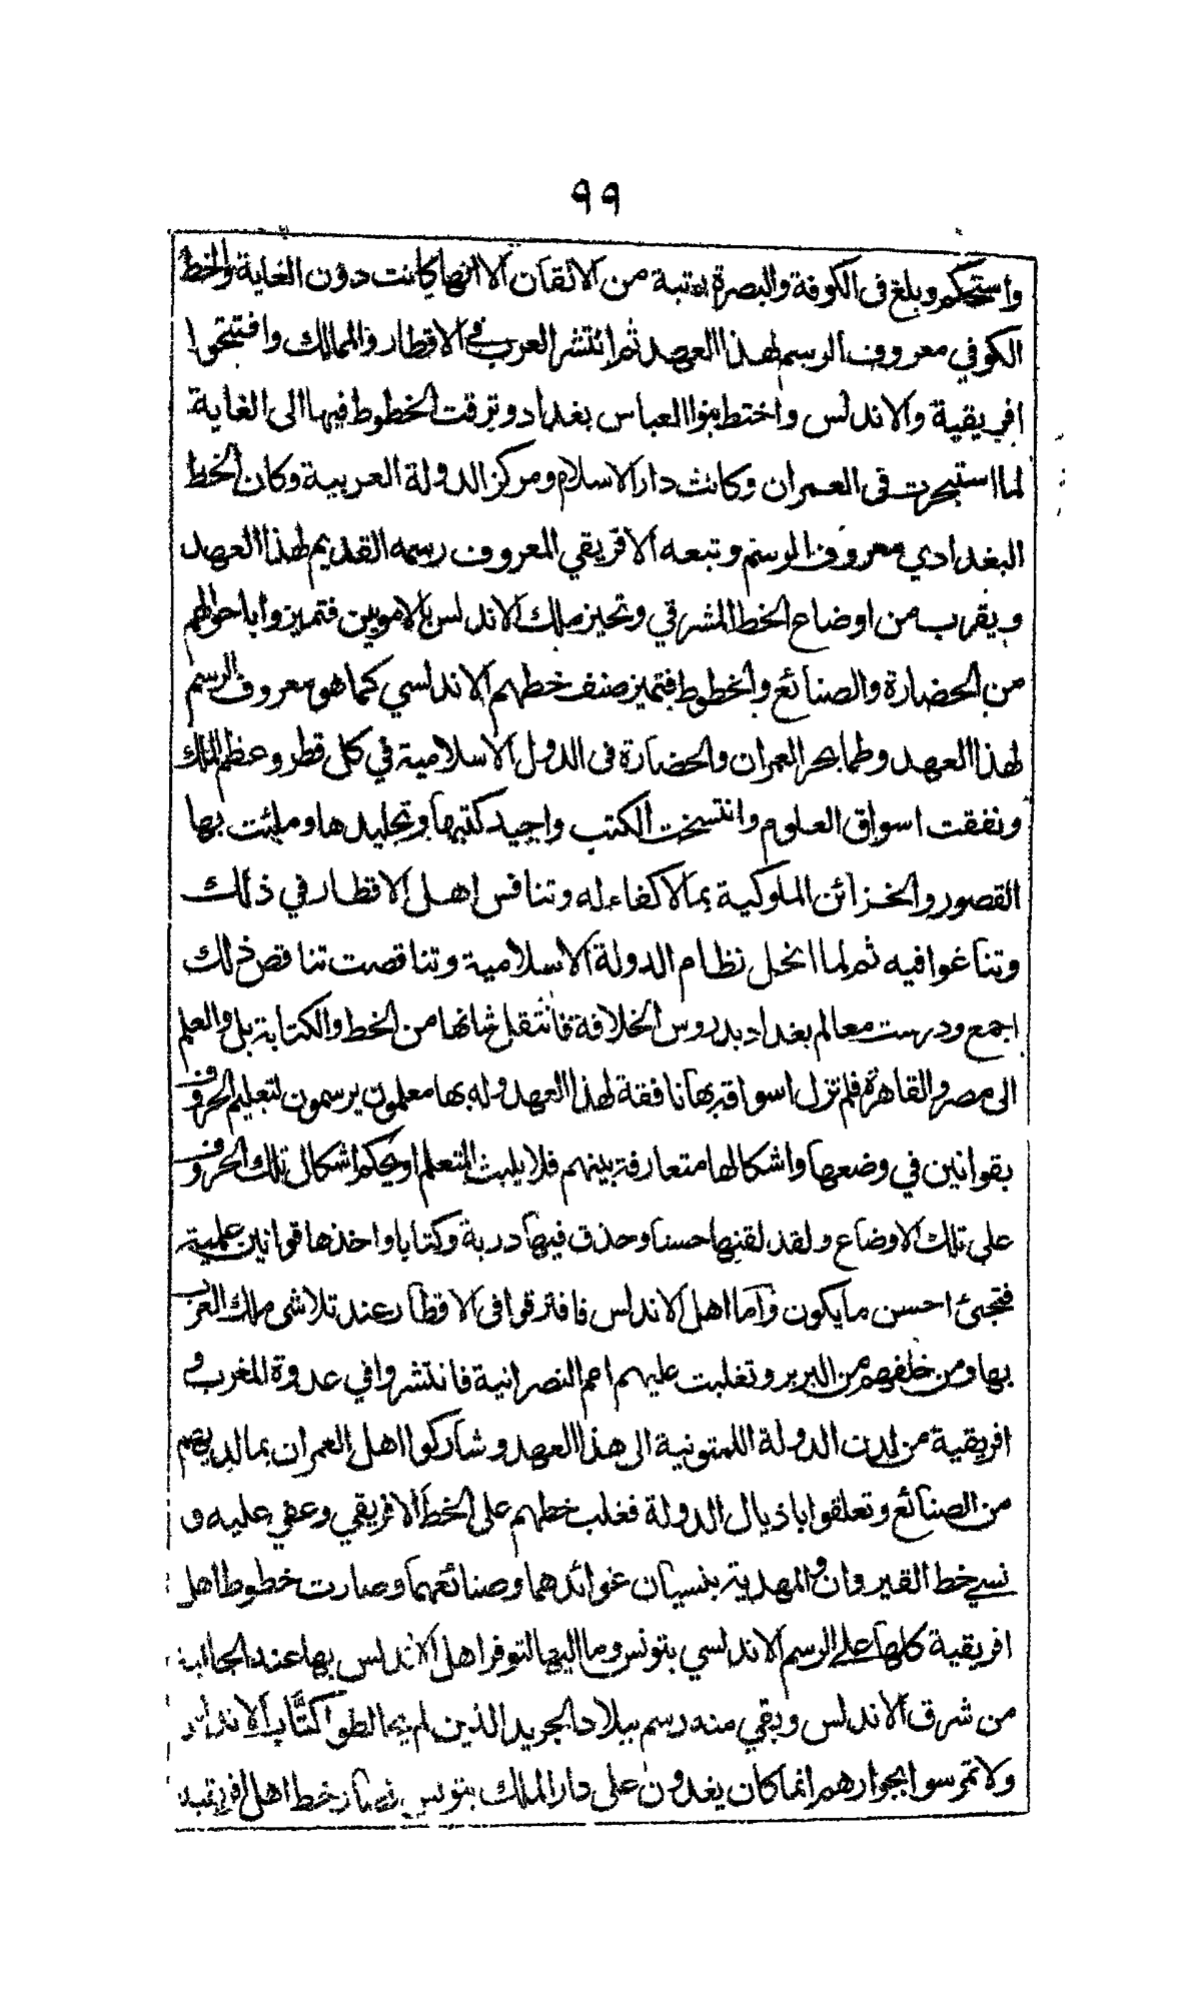 ٩٩
واستحكم وبلغ فى الكوفة والبصرة رتبة من الاتقان الا انها كانت دون الغاية والخط
الكوفي معروف الرسم لهذا العهد ثم انتشر العرب في الاقطار والممالك وافتتحوا
افريقية والاندلس واختط بنوا العباس بغداد وترقت الخطوط فيها الى الغاية
لما استبحرت فى العمران وكانت دار الاسلام ومركز الدولة العربية وكان الخط
البغدادي معروف الرسم وتبعه الافريقي المعروف رسمه القديم لهذا العهد
ويقرب من اوضاع الخط المشرقي وتحيز ملك الاندلس بالامويين فتميزوا باحوالهم
من الحضارة والصنائع والخطوط فتميز صنف خطهم الاندلسي كما هو معروف الرسم
لهذا العهد وطما بحر العمران والحضارة فى الدول الاسلامية في كل قطر وعظم الملك
ونفقت اسواق العلوم وانتسخت الكتب واجيد كتبها وتجليدها وملئت بها
القصور والخزائن الملوكية بما لاكفاء له وتنافس اهل الاقطار في ذلك
وتناغوا فيه ثم لما انحل نظام الدولة الاسلامية وتناقصت تناقص ذلك
اجمع ودرست معالم بغداد بدروس الخلافة فانتقل شانها من الخط والكتابة بل والعلم
الى مصر والقاهرة فلم تزل اسواقه بها نافقة لهذا العهد وله بها معلمون يرسمون لتعليم الحروف
بقوانين في وضعها واشكالها متعارفة بينهم فلا يلبث المتعلم او يحكم اشكال تلك الحروف
على تلك الاوضاع ولقد لقنها حسنا وحذق فيها دربة وكتابا واخذها قوانين علمية
فتجئ احسن ما يكون واما اهل الاندلس فافترقوا فى الاقطار عند تلاشى ملك العرب
بها ومن خلفهم من البربر وتغلبت عليهم امم النصرانية فانتشروا في عدوة المغرب و
افريقية من لدن الدولة اللمتونية الى هذا العهد وشاركوا اهل العمران بما لديهم
من الصنائع وتعلقوا باذيال الدولة فغلب خطهم على الخط الافريقي وعفي عليه و
نسي خط القيروان والمهدية بنسيان عوائدهما وصنائعهما وصارت خطوط اهل
افريقية كلها على الرسم الاندلسي بتونس وما اليها لتوفر اهل الاندلس بها عند الجالية
من شرق الاندلس وبقي منه رسم ببلاد الجريد الذين لم يخالطوا كتّاب الاندلس
ولا تمرسوا بجوارهم انما كان يغدون على دار الملك بتونس فصار خط اهل افريقية